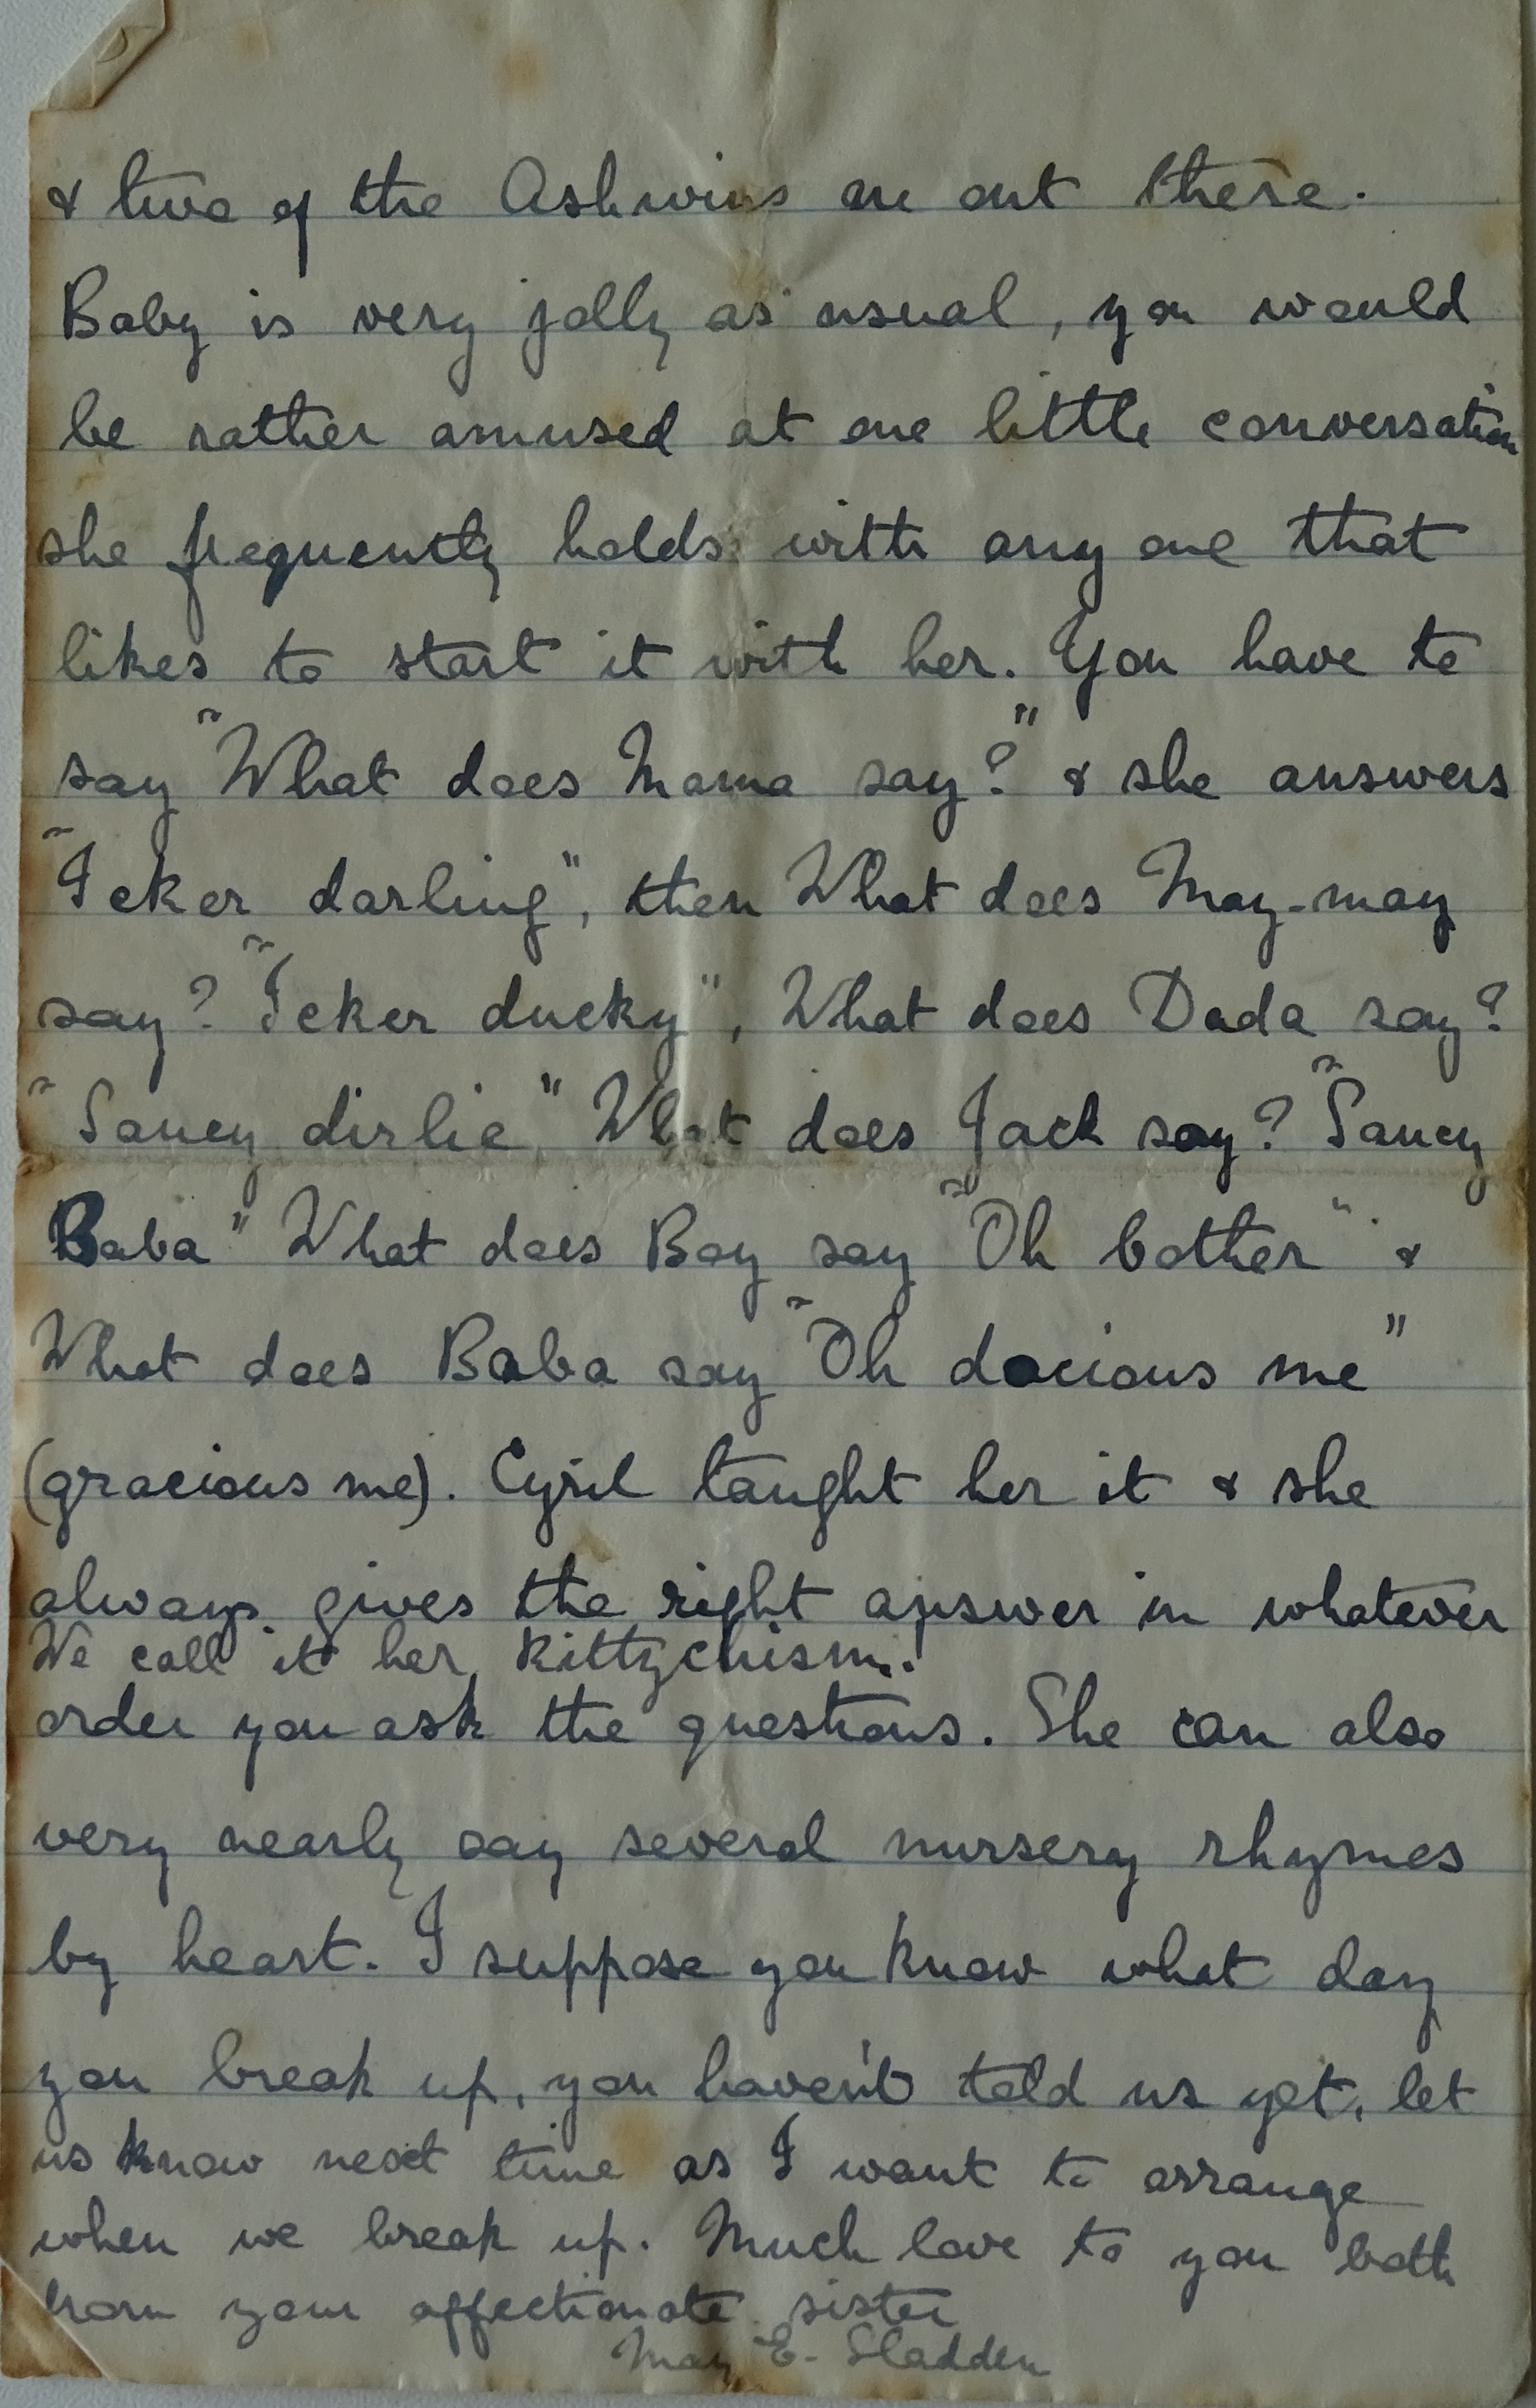 & two of the Ashwins are out there.
Baby is very jolly as usual, you would
be rather amused at one little conversation
she frequently holds with any one that
likes to start it with her. You have to
say "What does Mama say?" & she answers
"Icker darling", then What does May-may
say? "Icker ducky", What does Dada say?
"Saucy dirlie" What does Jack say? "Saucy
Baba" What does Boy say "Oh bother". &
What does Baba say "Oh dacious me"
(gracious me). Cyril taught her it & she
always gives the right answer in whatever
We call it her Kittychism!
order you ask the questions. She can also
very nearly say several nursery rhymes
by heart. I suppose you know what day
you break up, you haven't told us yet, let
us know next time as I want to arrange
when we break up. Much love to you both
from your affectionate sister
May E. Sladden